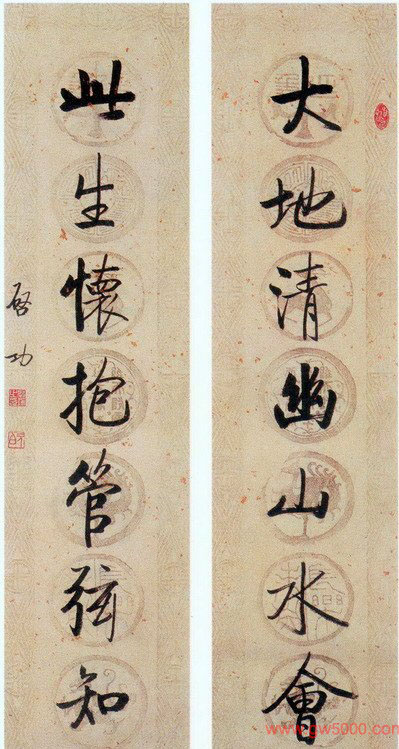 大地清幽山水會
此生懷抱管弦知
啓功
www.gw5000.com